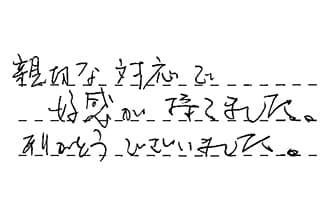 親切な対応で
好感が持てました。
ありがとうございました。